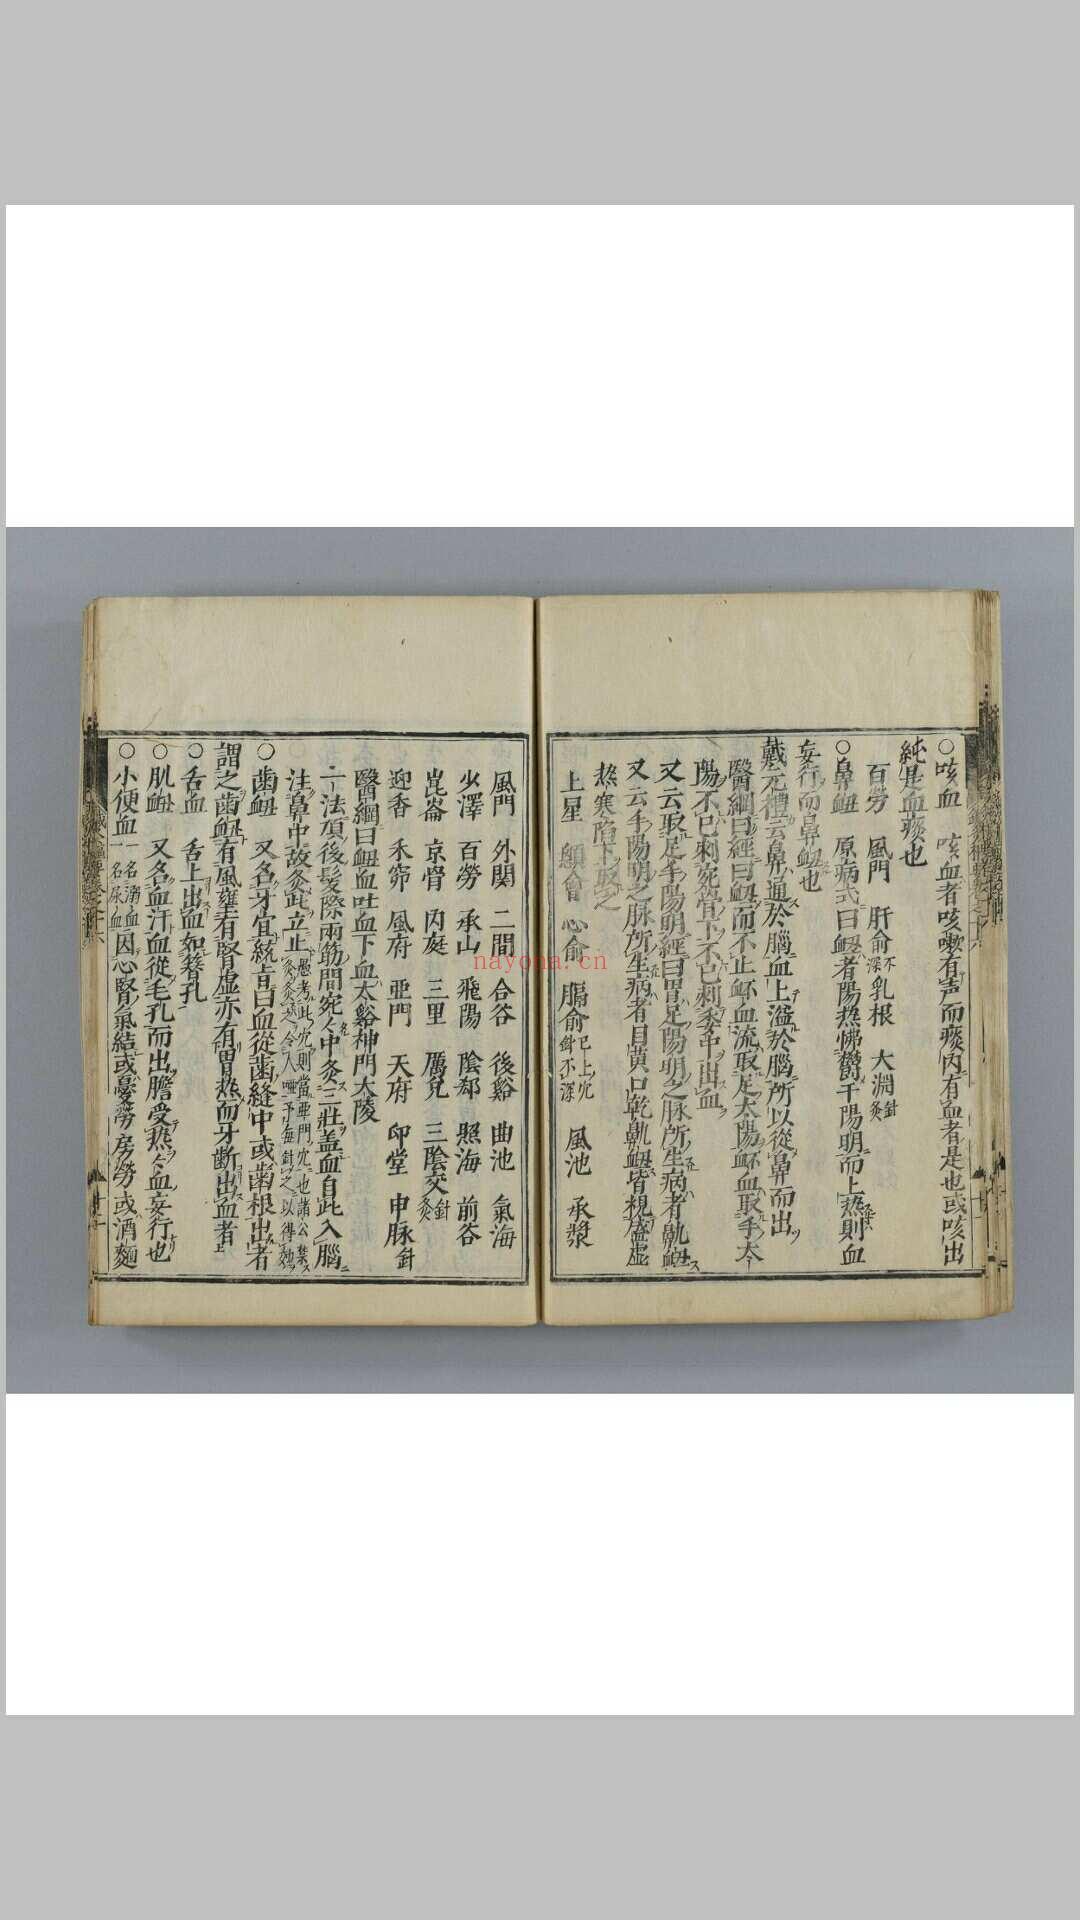 ○咳血　咳血者咳嗽有声而痰内有血者是也或咳出
純是血痰也
百勞　風門　肝俞不深乳根　大淵針灸
○鼻衄　原病式曰衄者陽热怫鬱于陽明而上热則血
妄行而鼻衄也
戴元禮云鼻通於腦血上溢於腦所以從鼻而出
醫綱曰經曰衄而不止衃血流取足太陽衃血取手太
陽不已刺宛筭下不已刺委中出血
又云取足手陽明經曰胃足陽明之脉所生病者鼽衄
又云手陽明之脉所生病者目黄口乾鼽衄皆視盛虚
热寒陷下取之
上星　顖會　心俞　膈俞已上穴針不深　風池　承漿
風門　外関　二間　合谷　後谿　曲池　氣海
少澤　百勞　承山　飛陽　陰郄　照海　前谷
崑崙　京骨　内庭　三里　厲兌　三陰交針灸
迎香　禾窌　風府　亜門　天府　印堂　申脉針
二法項後髮際兩筋間宛々中灸三壯盖血自此入腦
注鼻中故灸此立止愚考此穴則當亜門穴也諸公禁灸灸之令人唖予毎針之以得効
醫綱曰衄血吐血下血太谿神門大陵
○歯衄　又名牙宣統旨曰血從歯縫中或歯根出者
謂之歯衄有風壅有腎虚亦有胃热而牙斷出血者
○舌血　舌上出血如簪孔
○肌衄　又名血汗血從毛孔而出膽受热々血妄行也
○小便血一名溺血一名尿血因心腎氣結或憂勞房勞或酒麵
nayona.cn